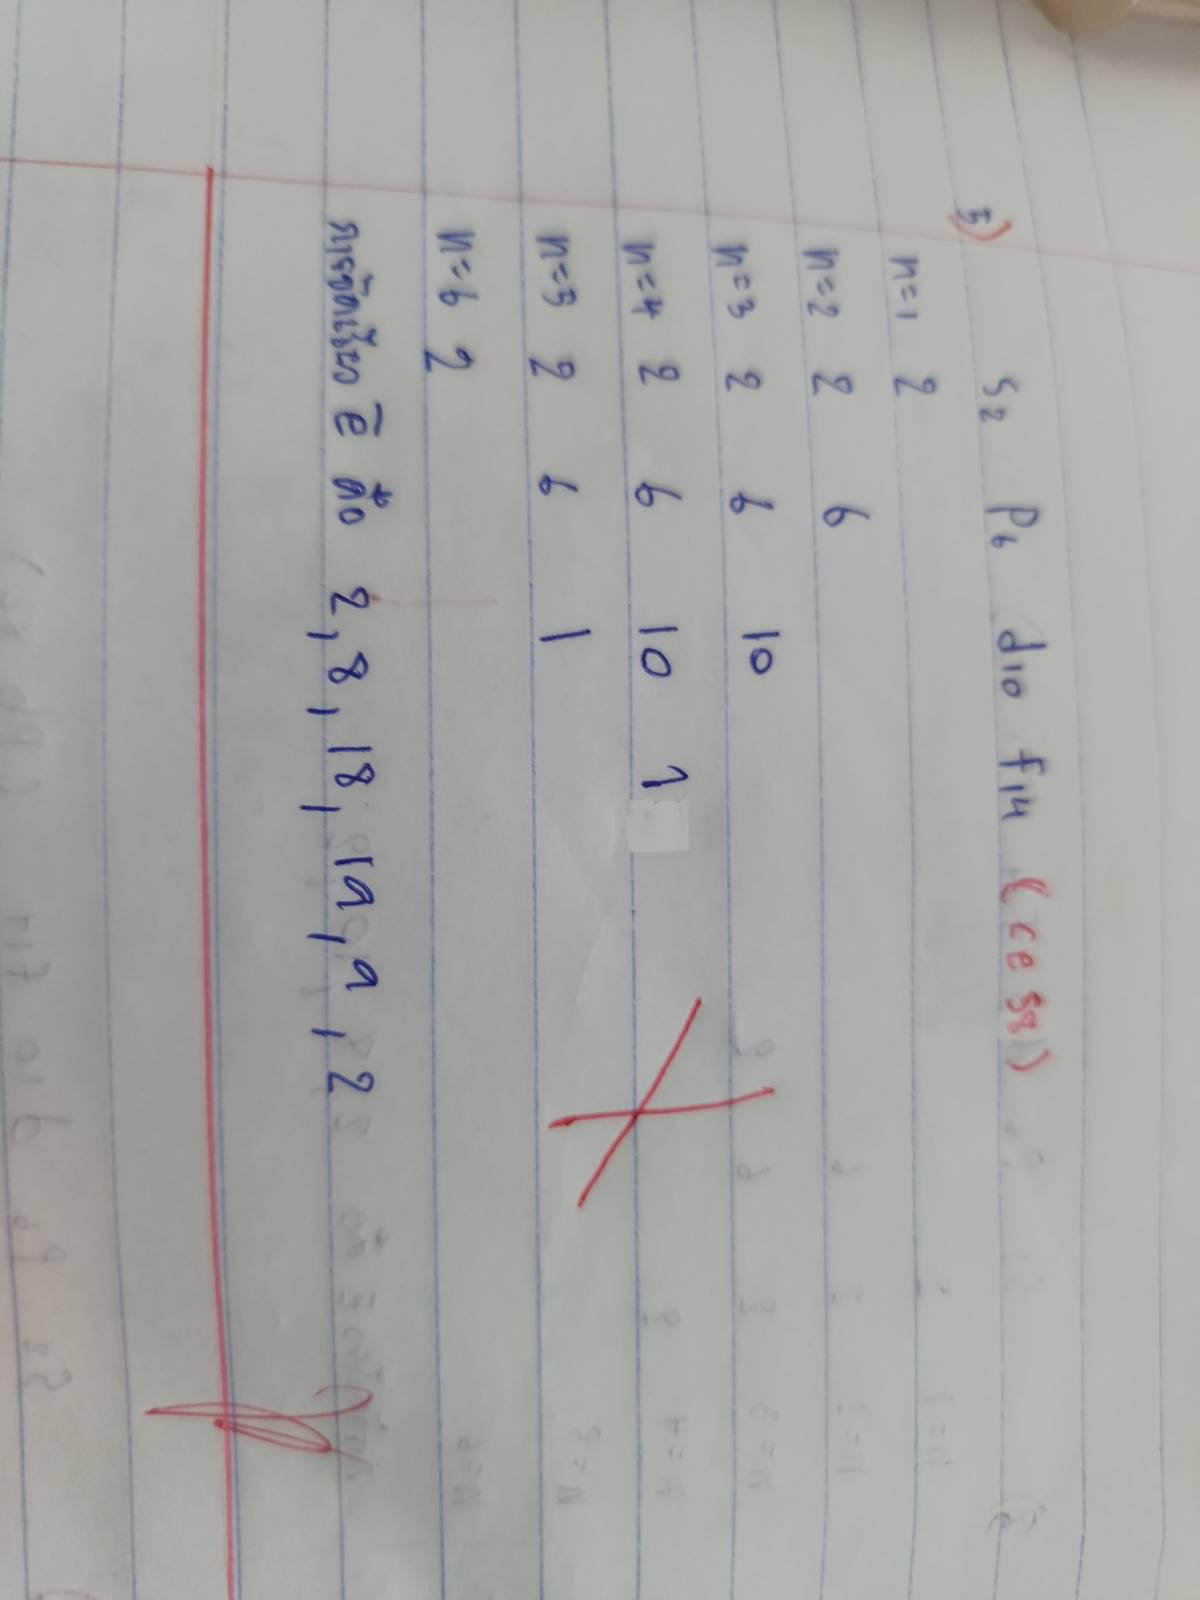 5) S2 P6 d10 f14 (Ce 58)
n=1 2
n=2 2 6
n=3 2 6 10
n=4 2 6 10 1
n=5 2 6 1
n=6 2
การจัดเรียง ē คือ 2, 8, 18, 19, 9, 2